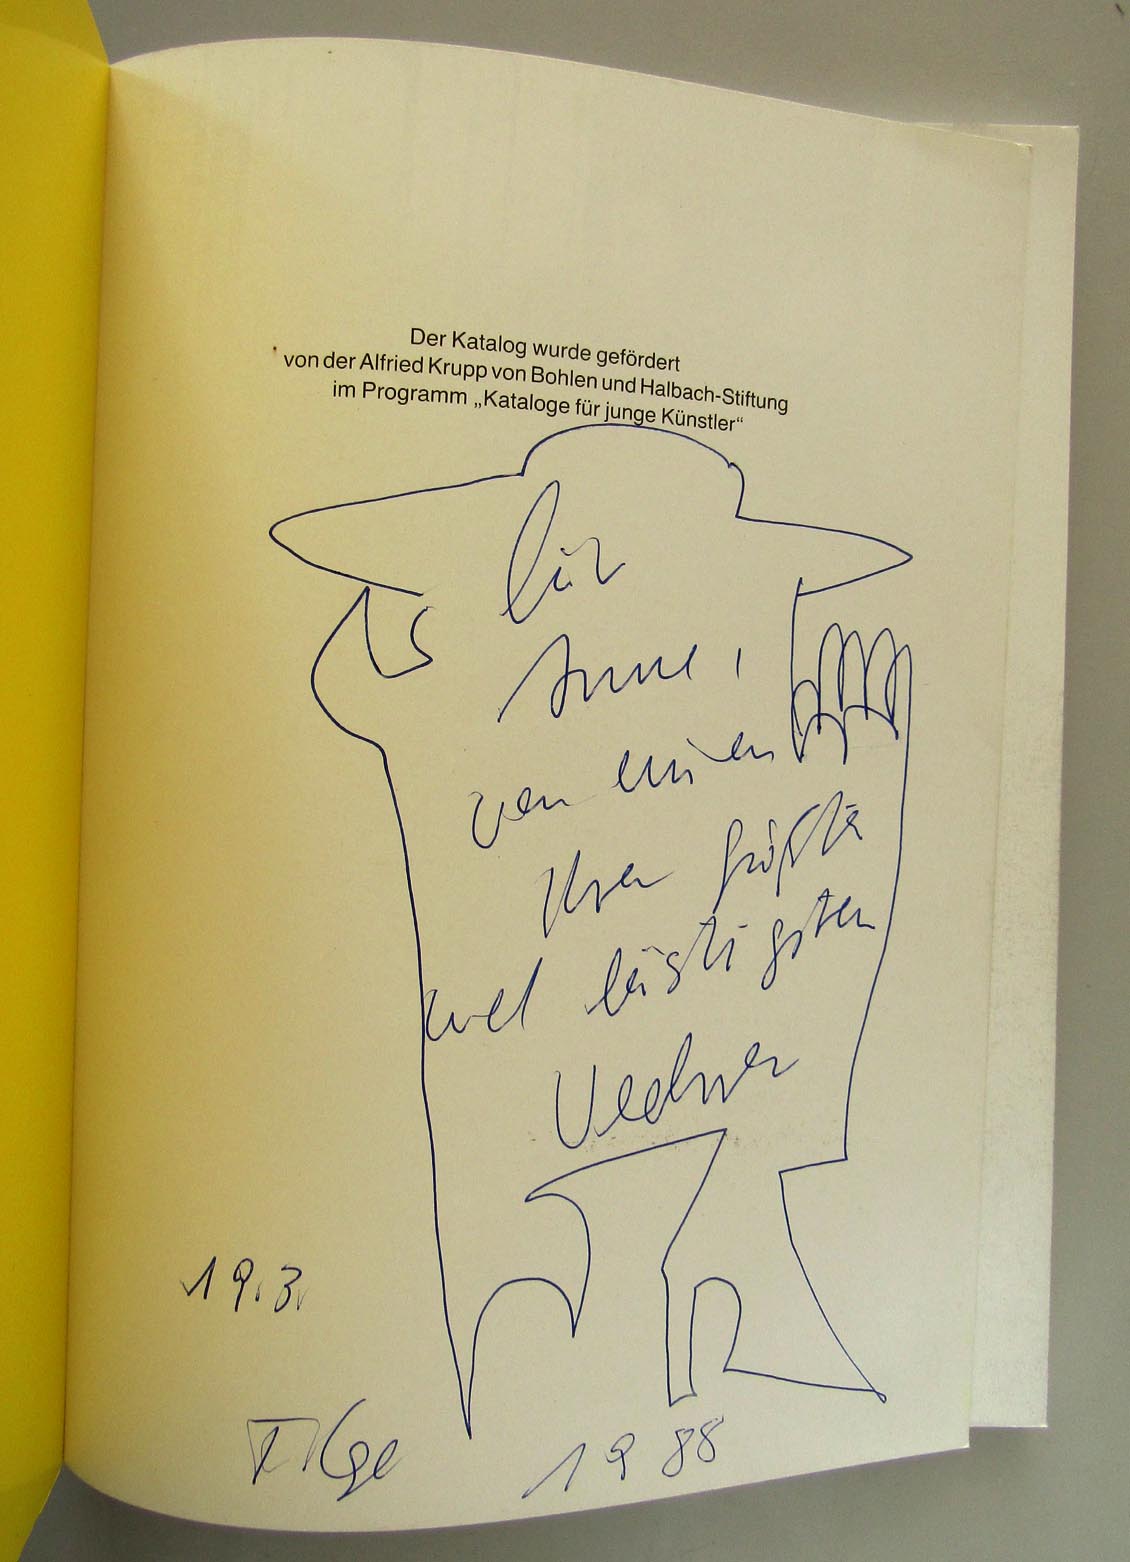 Der Katalog wurde gefördert
von der Alfried Krupp von Bohlen und Halbach-Stiftung
im Programm „Kataloge für junge Künstler“
für
Anne,
von einen
Ihrer größte
und lästigsten
Verehrer
19.3.
1988